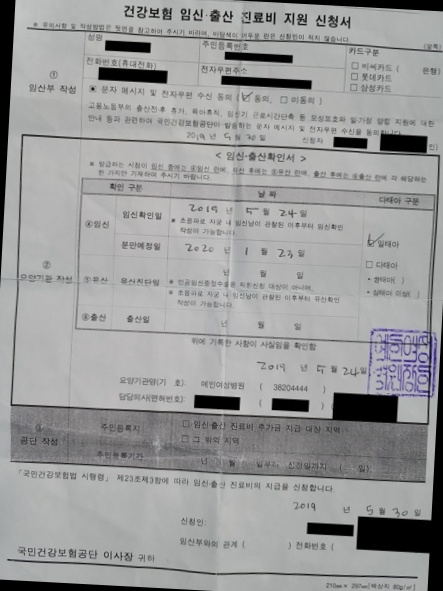 건강보험 임신·출산 진료비 지원 신청서
※ 유의사항 및 작성방법은 뒷면을 참고하여 주시기 바라며, 바탕색이 어두운 란은 신청인이 적지 않습니다. (앞쪽)
① 임산부 작성
성명 주민등록번호 카드구분
전화번호(휴대전화) 전자우편주소
□ 비씨카드 ( 은행)
□ 롯데카드
□ 삼성카드
문자 메시지 및 전자우편 수신 동의 ( 동의, □ 미동의 )
고용노동부의 출산전후 휴가, 육아휴직, 임신기 근로시간단축 등 모성보호와 일·가정 양립 지원에 대한
안내 등과 관련하여 국민건강보험공단이 발송하는 문자 메시지 및 전자우편 수신을 동의합니다.
2019년 5월 30일 신청자 인)
② 요양기관 작성
< 임신·출산확인서 >
확인 구분 날 짜 다태아 구분
④임신 임신확인일 2019 년 5 월 24 일
※ 초음파로 자궁 내 임신낭이 관찰된 이후부터 임신확인
작성이 가능합니다.
분만예정일 2020 년 1 월 23 일
일태아
□ 다태아
⑤유산 유산진단일 년 월 일
※ 초음파로 자궁 내 임신낭이 관찰된 이후부터 유산확인
작성이 가능합니다.
⑥출산 출산일 년 월 일
위에 기록한 사항이 사실임을 확인함
2019 년 5 월 24 일
요양기관명(기 호): 메인여성병원 ( 38204444 )
담당의사(면허번호): ( )
③ 공단 작성
주민등록지 □ 임신·출산 진료비 추가금 지급 대상 지역
□ 그 외의 지역
주민등록기간 년 월 일부터 신청일까지 ( 일)
「국민건강보험법 시행령」 제23조제3항에 따라 임신·출산 진료비의 지급을 신청합니다.
2019 년 5 월 30 일
신청인:
임산부와의 관계 ( ) 전화번호 (
국민건강보험공단 이사장 귀하
210㎜× 297㎜[백상지 80g/㎡]